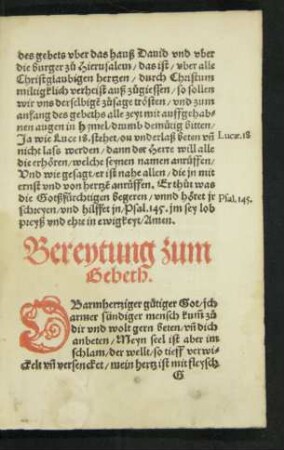 des gebets vber das hauß Dauid vnd vber
die burger zů Hierusalem / das ist / vber alle
Christglaubigen hertzen / durch Christum
miltigklich verheist auß zůgiessen / so sollen
wir vns derselbigē zůsage trösten / vnd zum
anfang des gebeths alle zeyt mit auffgehab-
nen augen in hymel / drumb demütig bitten /
Ja wie Luce 18. stehet / on vnderlaß betē vñ
Lucæ. 18
nicht lass werden / dann der Herre will alle
die erhören / welche seynen namen anrüffen /
Vnd wie gesagt / er ist nahe allen / die jn mit
ernst vnd von hertzē anrüffen. Er thůt was
die Gotßförchtigen begeren / vnnd höret jr
schreyen / vnd hilfft jn / Psal. 145. jm sey lob
Psal. 145.
preyß vnd ehre in ewigkeyt / Amen.
Bereytung zum
Gebeth.
O Barmhertziger gütiger Got / jch
armer sündiger mensch kum̄ zů
dir vnd wolt gern beten / vñ dich
anbeten / Meyn seel ist aber im
schlam / der wellt / so tieff verwi-
ckelt vñ versencket / mein hertz ist mit fleysch
G